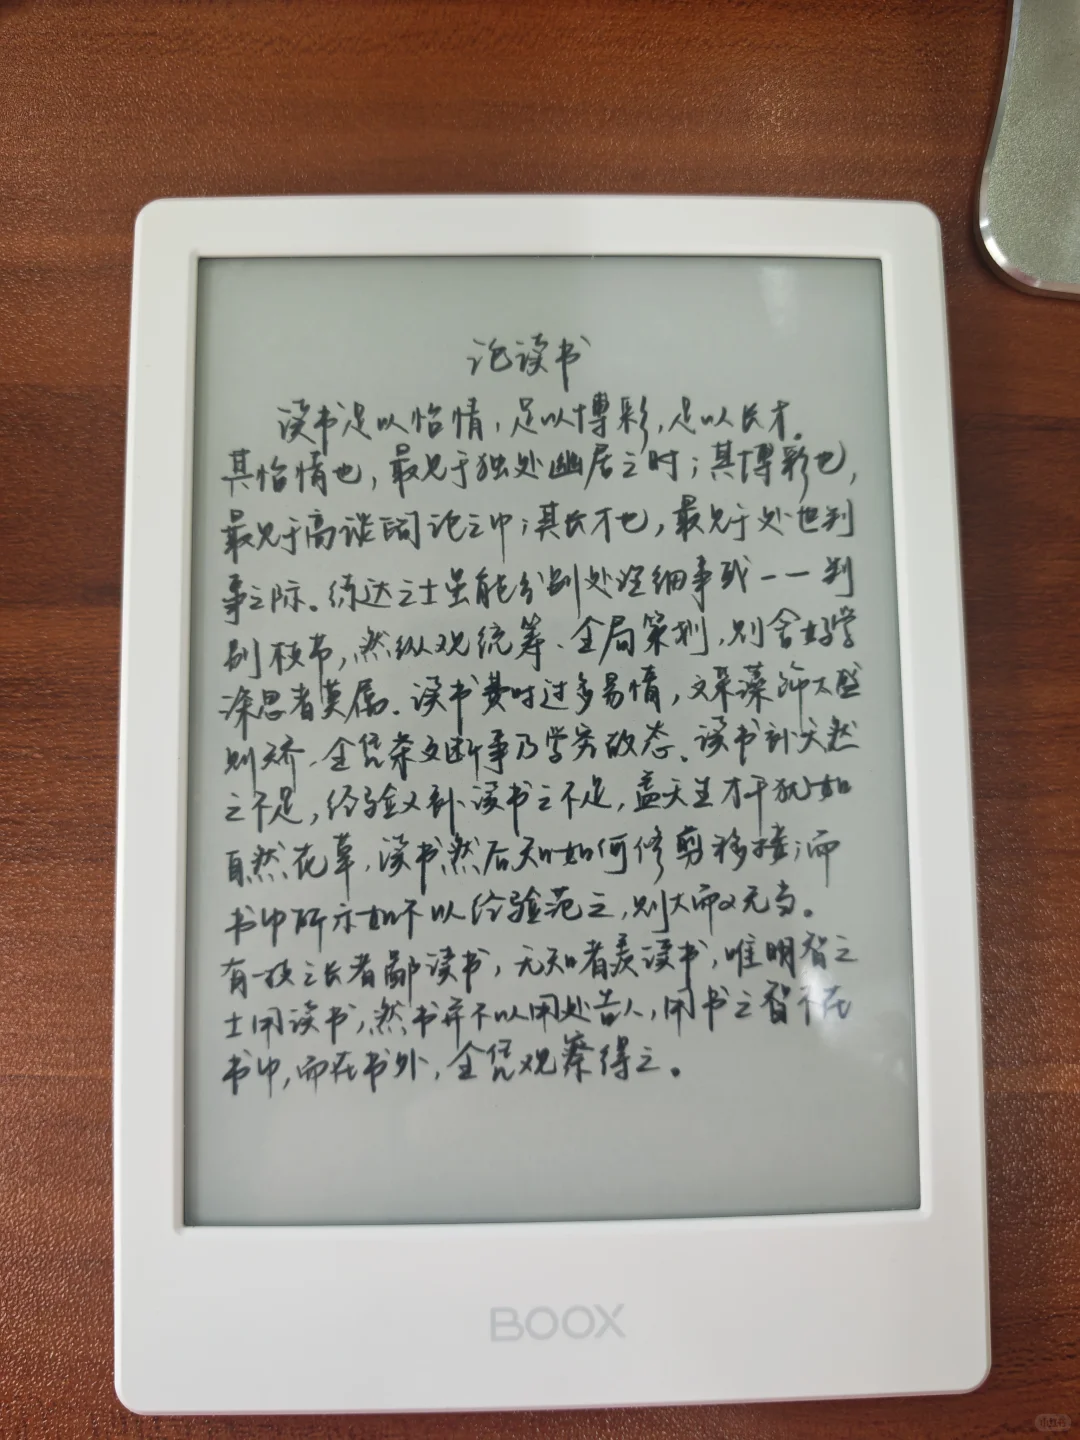 论读书
读书足以怡情，足以博彩，足以长才。
其怡情也，最见于独处幽居之时；其博彩也，
最见于高谈阔论之中；其长才也，最见于处世判
事之际。练达之士虽能分别处理细事或一一判
别枝节，然纵观统筹、全局策划，则舍好学
深思者莫属。读书费时过多易惰，文采藻饰太盛
则矫，全凭条文断事乃学究故态。读书补天然
之不足，经验又补读书之不足，盖天生才干犹如
自然花草，读书然后知如何修剪移接；而
书中所示如不以经验范之，则大而又无当。
有一技之长者鄙读书，无知者羡读书，唯明智之
士用读书，然书并不以用处告人，用书之智不在
书中，而在书外，全凭观察得之。
BOOX